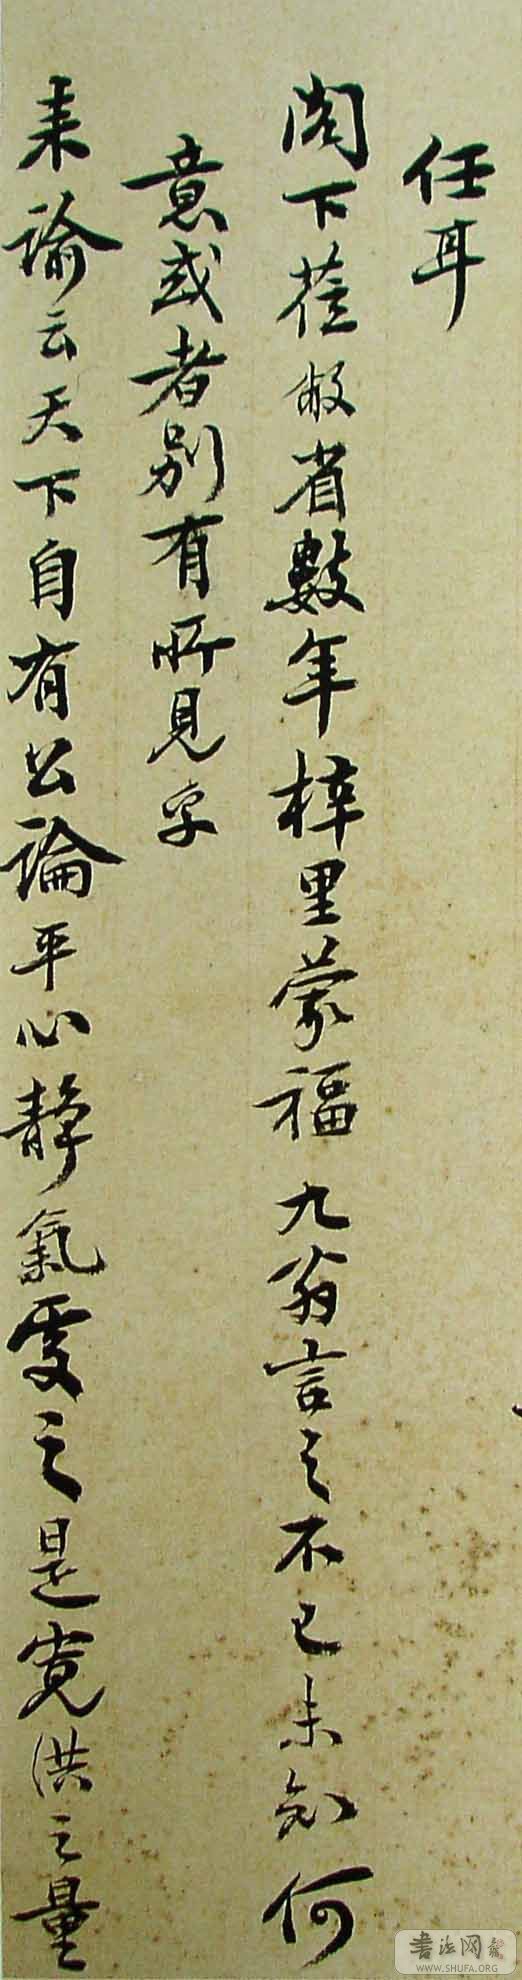 任耳
閣下蒞敝省數年梓里蒙福九翁言之不已未知何
意或者別有所見乎
来諭云天下自有公論平心靜氣受之是寬洪之量
书法网
WWW.SHUFA.ORG